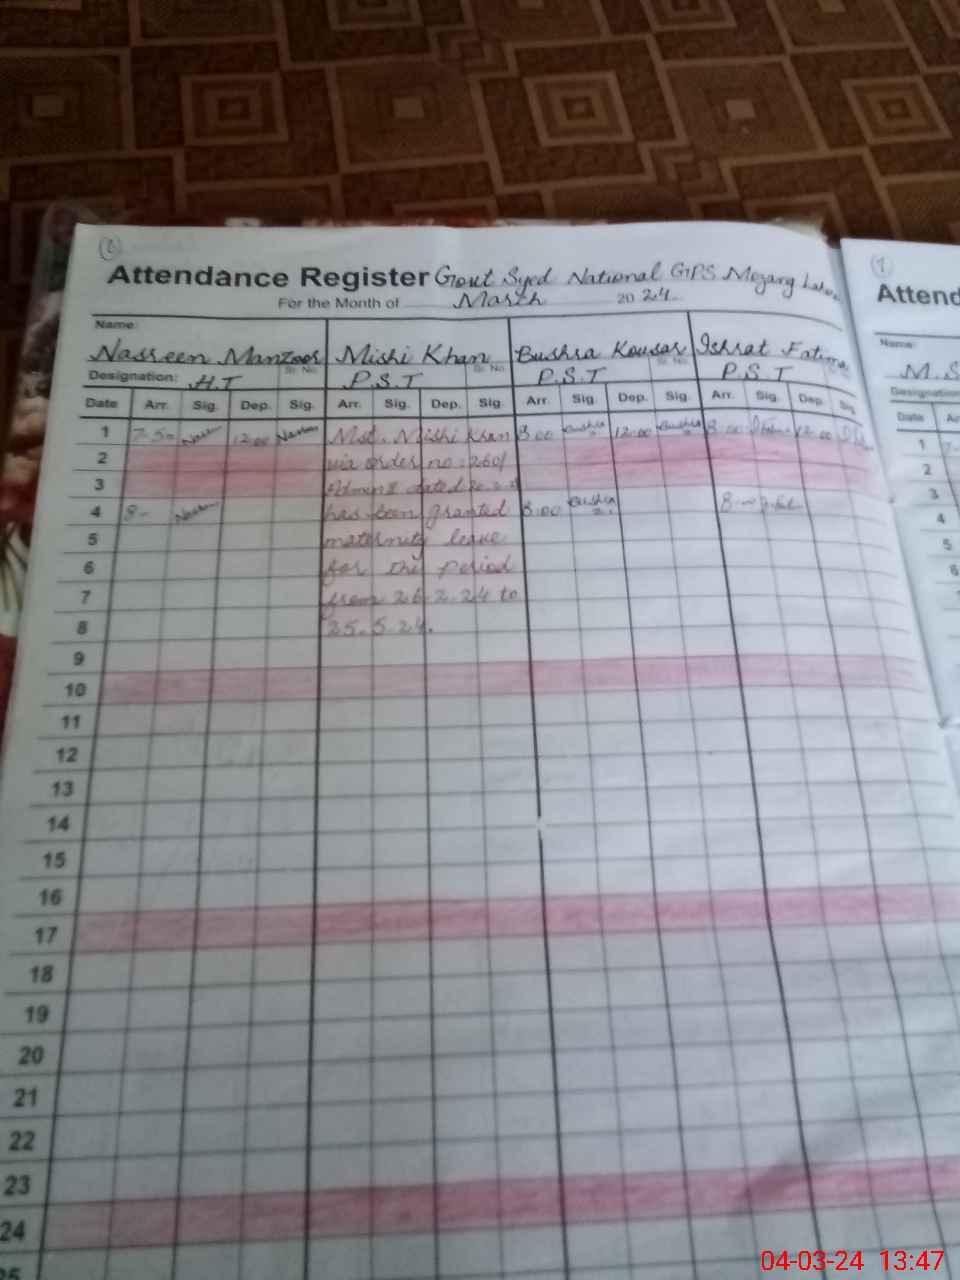 6
Attendance Register Govt Syed National GPS Mozang Lahore
For the Month of March 2024
Name:
Nasreen Manzoor Mishi Khan Bushra Kousar Ishrat Fatima
Designation: H.T Sr. No. P.S.T Sr. No. P.S.T Sr. No. P.S.T
Date Arr. Sig. Dep. Sig. Arr. Sig. Dep. Sig. Arr. Sig. Dep. Sig. Arr. Sig. Dep. Sig.
1 12:00 Mst. Mishi Khan 8:00 Bushra 12:00 Bushra 8:00 12:00
2 via order no: 260/
3 dated
4 8- has been granted 8:00 Bushra
5 maternity leave
6 for the period
7 from 26.2.24 to
8 25.5.24.
9
10
11
12
13
14
15
16
17
18
19
20
21
22
23
24
25
7
Attend
Name:
M.S
Designation
Date
1
2
3
4
5
6
04-03-24 13:47